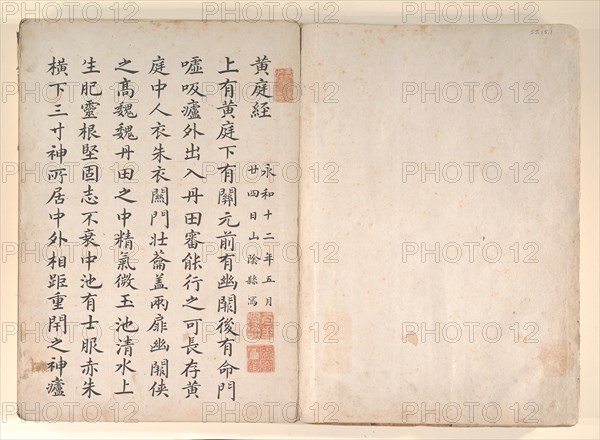 黄庭経
永和十二年五月
廿四日山陰縣寫
上有黄庭下有關元前有幽闕後有命門
嘘吸廬外出入丹田審能行之可長存黄
庭中人衣朱衣關門壮蘥盖兩扉幽闕俠
之髙魏魏丹田之中精氣微玉池清水上
生肥靈根堅固志不衰中池有士服赤朱
横下三寸神所居中外相距重閉之神廬
PHOTO 12